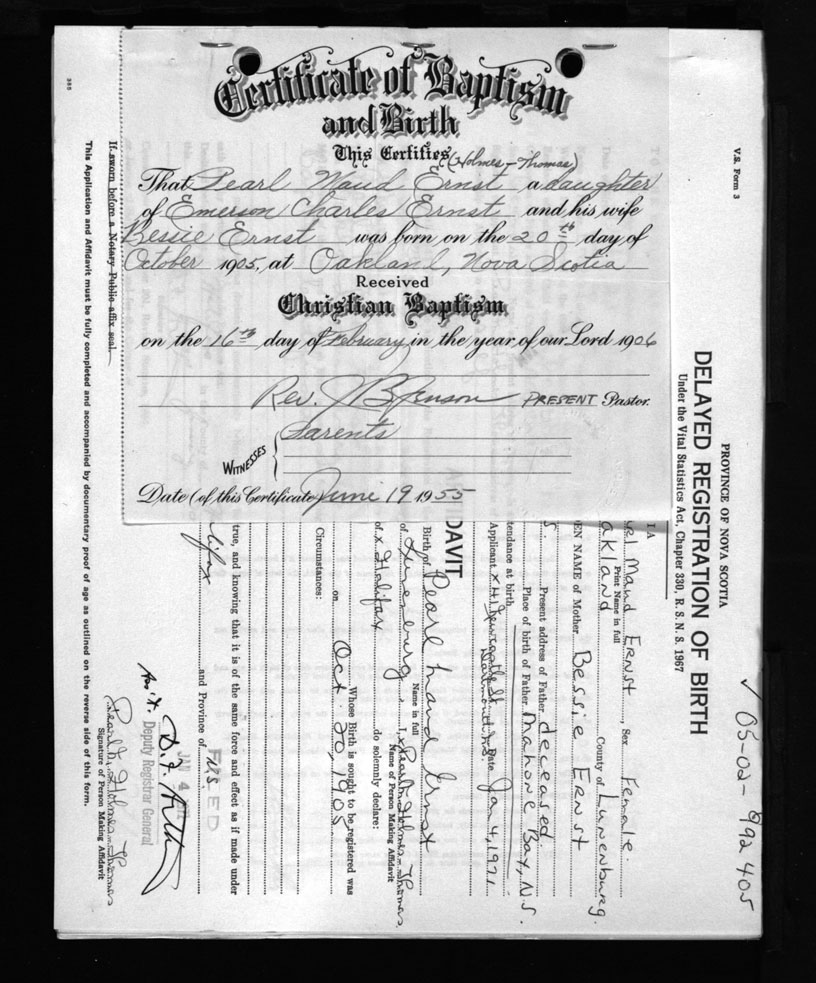 Certificate of Baptism
and Birth
This Certifies (Holmes-Thomas)
That Pearl Maud Ernst a daughter
of Emerson Charles Ernst and his wife
Bessie Ernst was born on the 20th day of
October 1905, at Oakland, Nova Scotia
Received
Christian Baptism
on the 16th day of February in the year of our Lord 1906
Rev. J B Jenson PRESENT Pastor.
WITNESSES { Parents
Date (of this Certificate June 19 1955
V.S. Form 3
✓ 05-02-992405
PROVINCE OF NOVA SCOTIA
DELAYED REGISTRATION OF BIRTH
Under the Vital Statistics Act, Chapter 330, R. S. N. S. 1967
Maud Ernst, Sex Female.
Print Name in full
akland County of Lunenburg.
EN NAME of Mother Bessie Ernst
Present address of Father deceased
Place of birth of Father Mahone Bay, N.S.
tendance at birth
Applicant x Date Jan 4, 1971
Dartmouth N.S.
DAVIT
Birth of Pearl Maud Ernst
Name in full
of Lunenburg, I, x Pearl Holmes-Thomas
Name of Person Making Affidavit
of x Halifax do solemnly declare:
Whose Birth is sought to be registered was
on Oct. 20, 1905
Circumstances:
true, and knowing that it is of the same force and effect as if made under
lifax and Province of N.S.
JAN 4
Deputy Registrar General
Pearl Holmes-Thomas
Signature of Person Making Affidavit
If sworn before a Notary Public affix seal.
This Application and Affidavit must be fully completed and accompanied by documentary proof of age as outlined on the reverse side of this form.